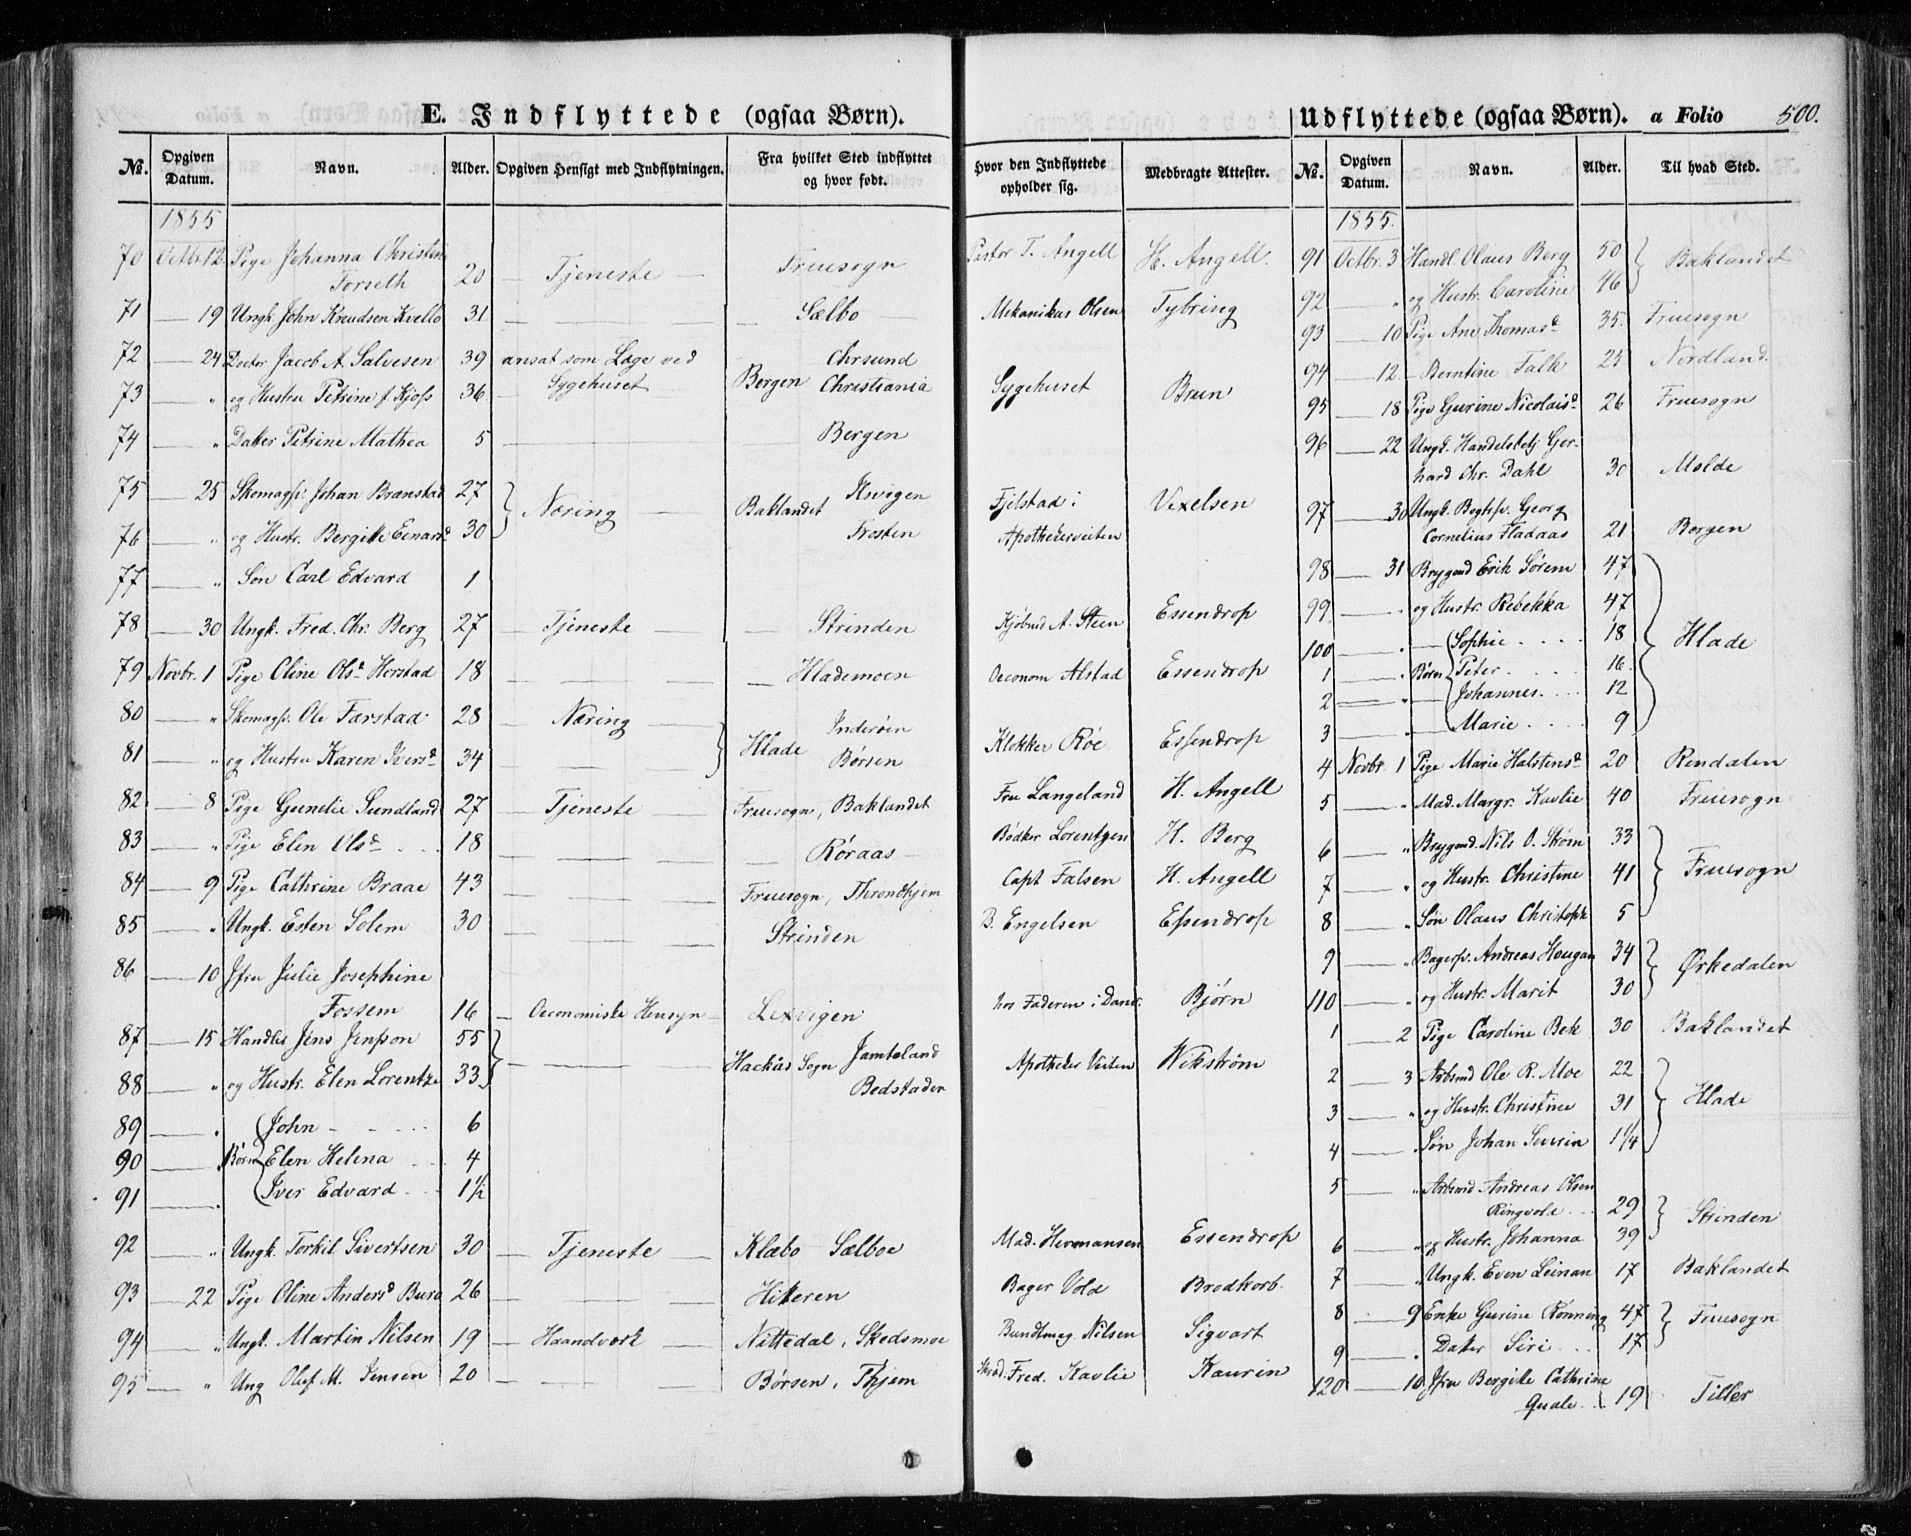 E. Indflyttede (ogsaa Børn).
Udflyttede (ogsaa Børn). a Folio 500.
No. Opgiven Datum. Navn. Alder. Opgiven Hensigt med Indflytningen. Fra hvilket Sted indflyttet og hvor født. Hvor den Indflyttede opholder sig. Medbragte Attester.
1855
70 Octbr. 12 Pige Johanna Christine Forseth 20 — Tjeneste — Fruesogn Pastor T. Angell H. Angell.
71 — 19 Ungk. John Knudsen Kvello 31 — — — Sælbo Mekanikus Olsen Tybring
72 — 24 Doctor Jacob A. Salvesen 39 ansat som Læge ved Sygehuset Bergen Chrsund Sygehuset Brun
73 — " og Hustru Petrine f. Kjoss 36 Christiania
74 — " Datter Petrine Mathea 5 — Bergen
75 — 25 Skomagsv. Johan Branstad 27 } Næring — Baklandet Fjelstad i Apothekerveiten Vexelsen
76 — " og Hustr. Bergitte Einarsd. 30 Frosten
77 — " Søn Carl Edvard 1
78 — 30 Ungk. Fred. Chr. Berg 27 — Tjeneste — Strinden Kjøbmd A. Steen Essendrop
79 Novbr. 1 Pige Oline Olsd. Horstad 18 — — — Hlademoen Oeconom Alstad Essendrop
80 — " Skomagsv. Ole Farstad 28 — Næring — } Hlade Inderøen Klokker Røe Essendrop
81 — " og Hustru Karen Iversd. 34 — — — Børsen
82 — 8 Pige Gunelie Sundland 27 — Tjeneste — Fruesogn, Baklandet Fru Langeland H. Angell
83 — " Pige Elen Olsd. 18 — — — Røraas Bødker Lorentzen H. Berg
84 — 9 Pige Cathrine Braae 43 — — — Fruesogn, Throndhjem Capt Falsen H. Angell
85 — " Ungk. Esten Solem 30 — — — Strinden B. Engelsen Essendrop
86 — 10 Jfru Julie Josephine Fossem 16 — Oeconomiske Hensyn — Lexvigen hos Faderen i Bjørn
87 — 15 Handlb. Jens Jensson 55 } — — — Hackås Sogn Jamteland Apotheker Veiten Wikstrøm
88 — " og Hustr. Elen Lorentze 33 Bedstaden
89 — . Børn { John 6
90 — . Elen Helena 4
91 — . Iver Edvard 1½
92 " Ungk. Torkil Sivertsen 30 — Tjeneste — Klæbo Sælboe Mad. Hermansen Essendrop
93 — 22 Pige Oline Andersd Buro 26 — — — Hitteren Bager Vold Brodkorb.
94 — " Ungk. Martin Nilsen 19 — Haandverk — Nittedal, Skedsmoe Bundtmag. Nilsen Sigvart
95 — " Ung Oluf M. Jensen 20 — — — Børsen, Thjem Skræd. Fred. Kavlie Kaurin
No. Opgiven Datum. Navn. Alder. Til hvad Sted.
1855.
91 Octbr. 3 Handl. Olaus Berg 50 } Baklandet
92 — " og Hustr. Caroline 46
93 — 10 Pige Ane Thomasd. 35. Fruesogn
94 — 12 — Berntine Falk 25 Nordland.
95 — 18 Pige Gurine Nicolaisd. 26 Fruesogn
96 — 22 Ungk. Handelsbetj Gerhard Chr. Dahl 30 Molde
97 — 30 Ungk. Bogtr. Georg Cornelius Fladaas 21 Bergen
98 — 31 Brygmd Erik Sørem 47 } Hlade
99 — . og Hustr. Rebekka 47
100 — . — { Sophie 18
1 — " Børn Peter 16.
2 — " — Johannes 12
3 — " Marie 9
4 Novbr. 1 Pige Marie Halstensd. 20 Rendalen
5 — " Mad. Margr. Kavlie 40 Fruesogn
6 — " Brygmd. Nils O. Strøm 33 } Fruesogn
7 — " og Hustr. Christine 41
8 — " Søn Olaus Christoph 5
9 — " Bagersv. Andreas Hougan 34 } Ørkedalen
110 — " og Hustr. Marit 30
1 — 2 Pige Caroline Bek 30 Baklandet
2 — 3 Arbmd Ole R. Moe 22 } Hlade
3 — " og Hustr. Christine 31
4 — Søn Johan Severin 1¼
5 — " Arbmd Andreas Olsen Ringvold 29 } Strinden
6 — " og Hustr. Johanna 39
7 — " Ungk. Even Leinan 17 Baklandet
8 — 9 Enke Gurine Rønning 47 } Fruesogn
9 — " Datter Siri 17
120 — 10 Jfru Bergitte Cathrine Quale 19 Tiller